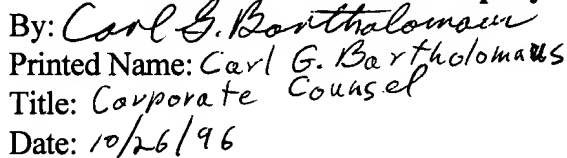 By: Carl G. Bartholomaus
Printed Name: Carl G. Bartholomaus
Title: Corporate Counsel
Date: 10/26/96